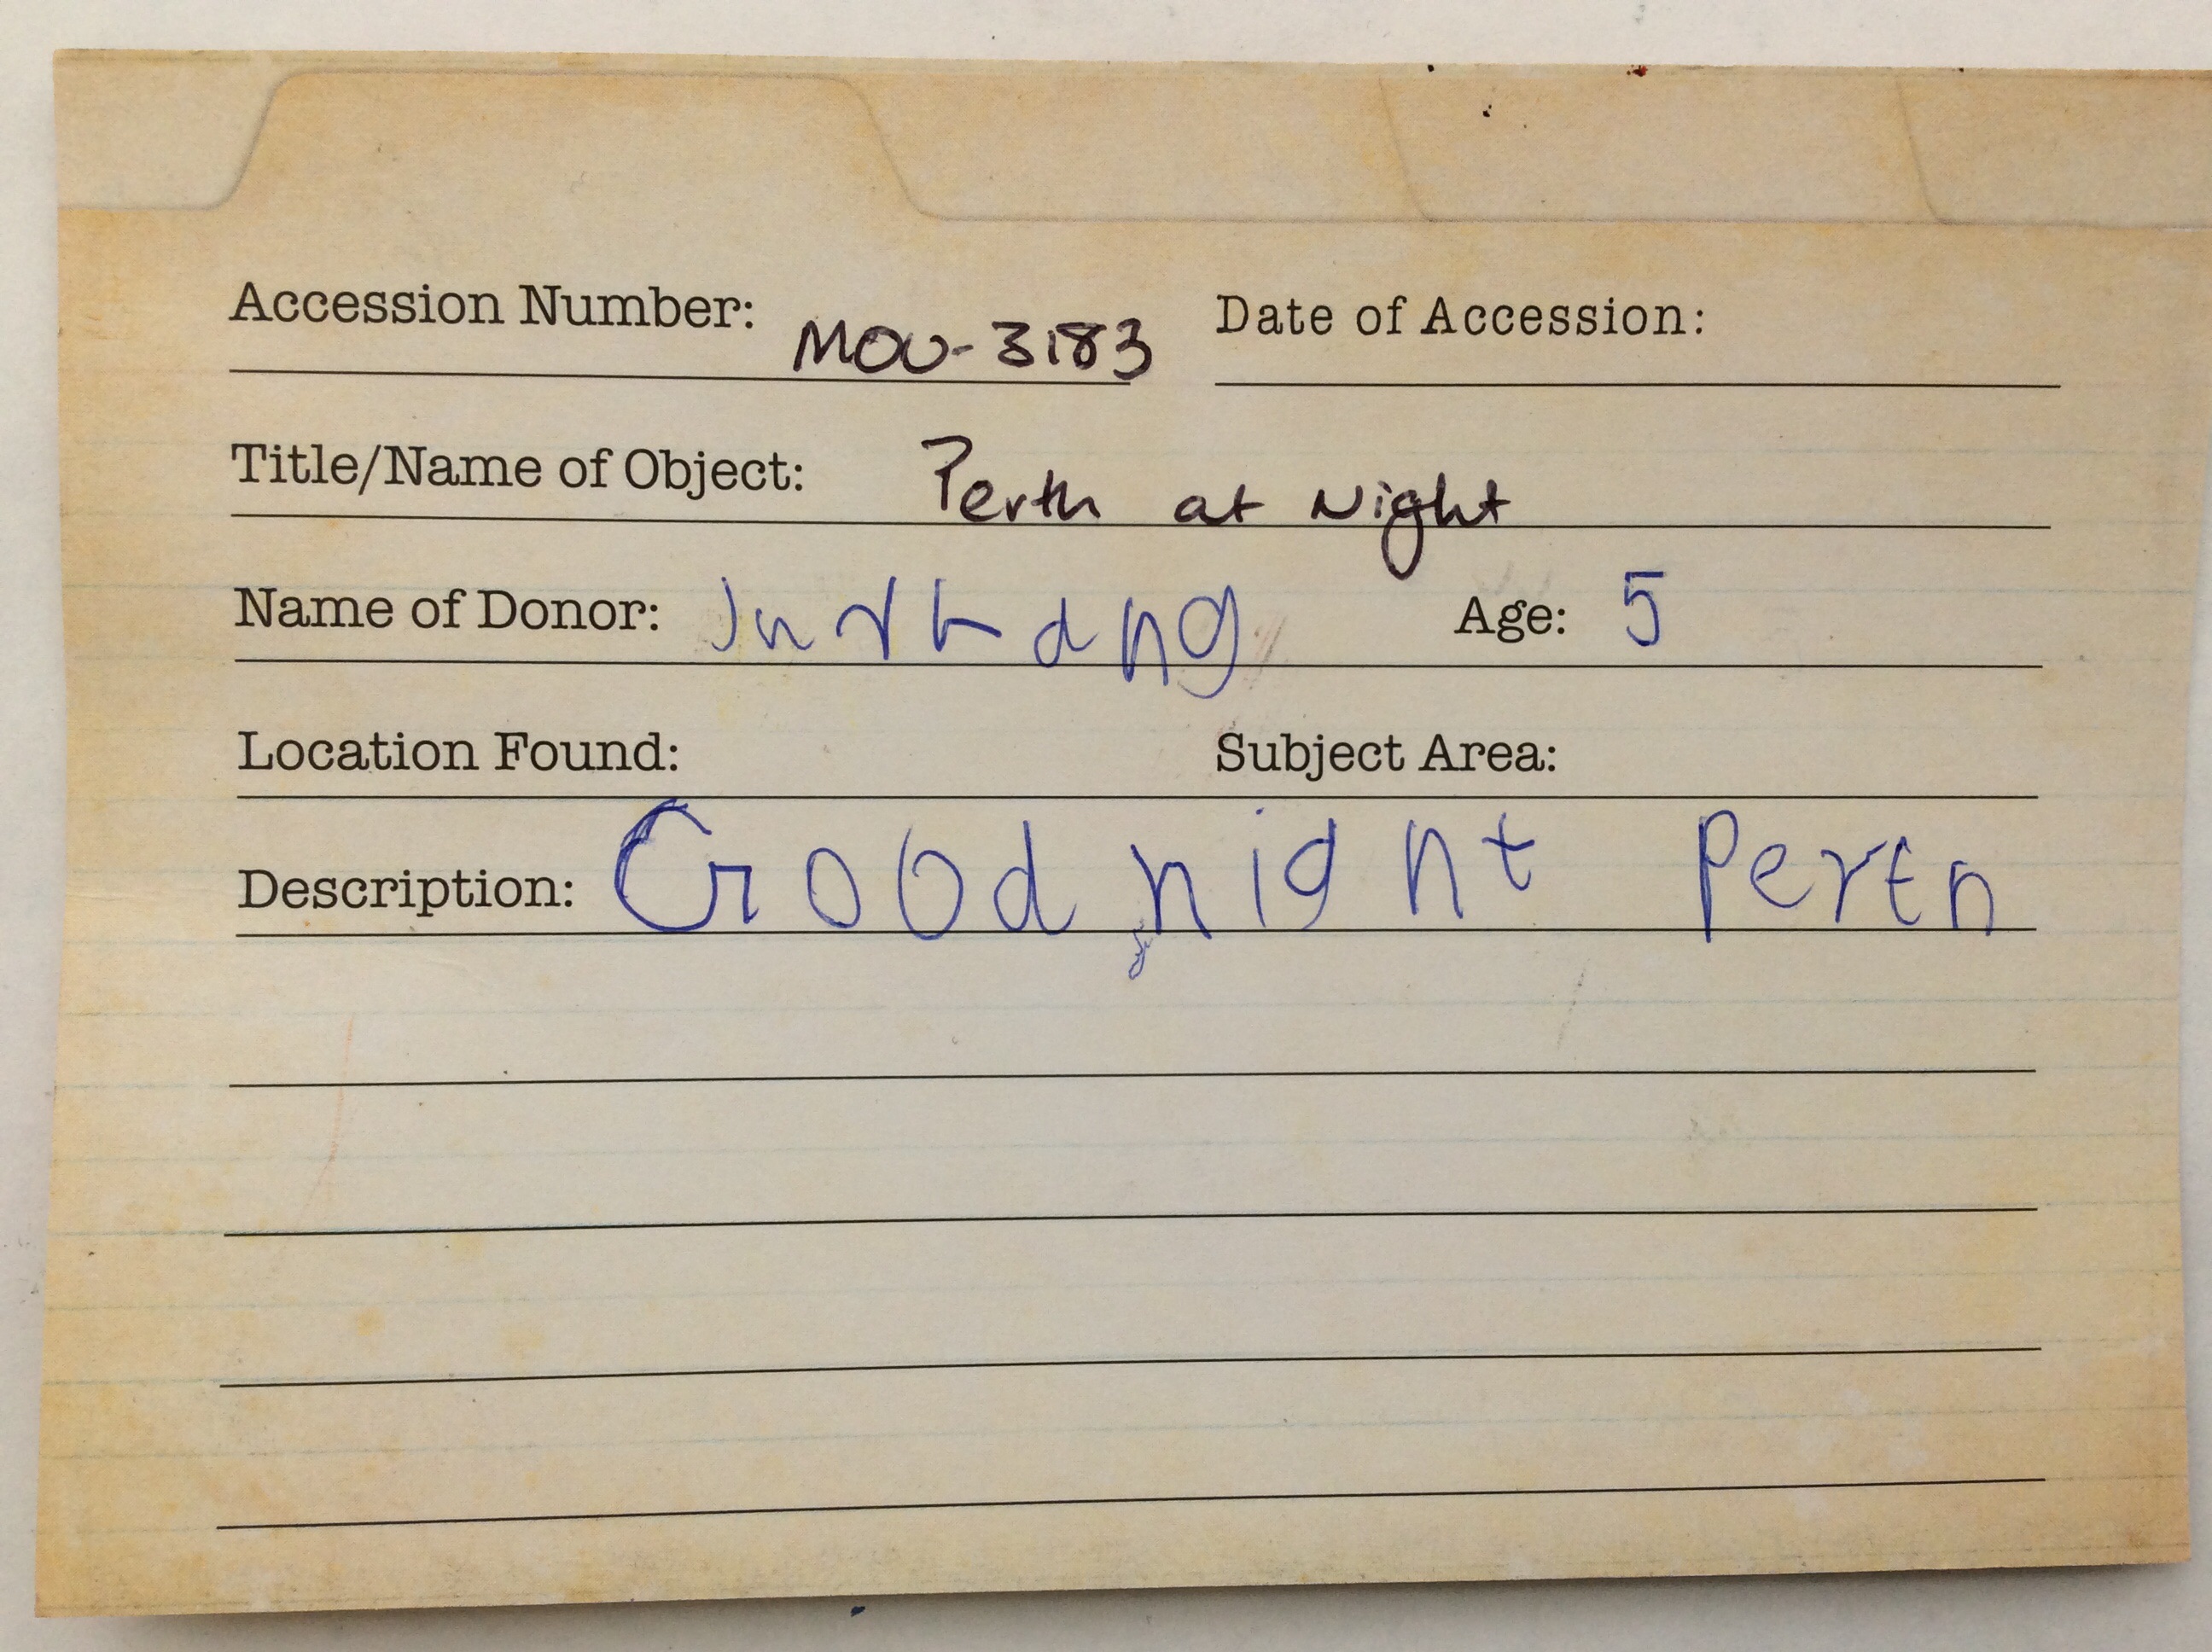 Accession Number: MOU-3183 Date of Accession:
Title/Name of Object: Perth at Night
Name of Donor: Age: 5
Location Found: Subject Area:
Description: Good night Perth